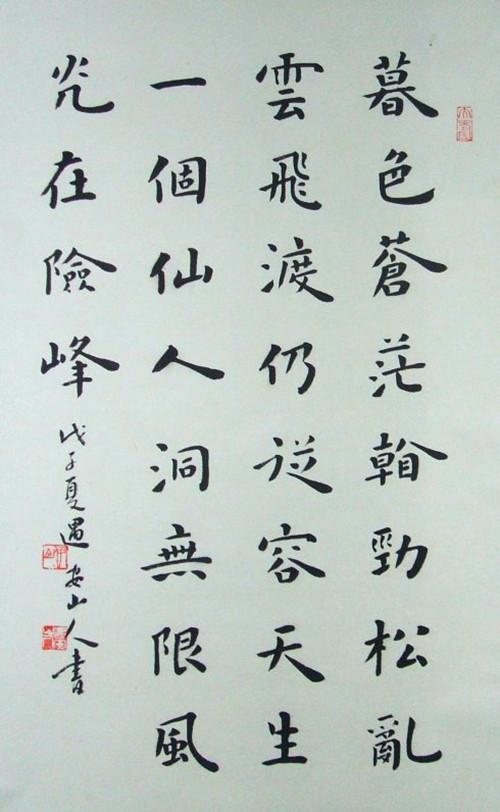 暮色蒼茫看勁松亂
雲飛渡仍從容天生
一個仙人洞無限風
光在險峰
戊子夏遇安山人書